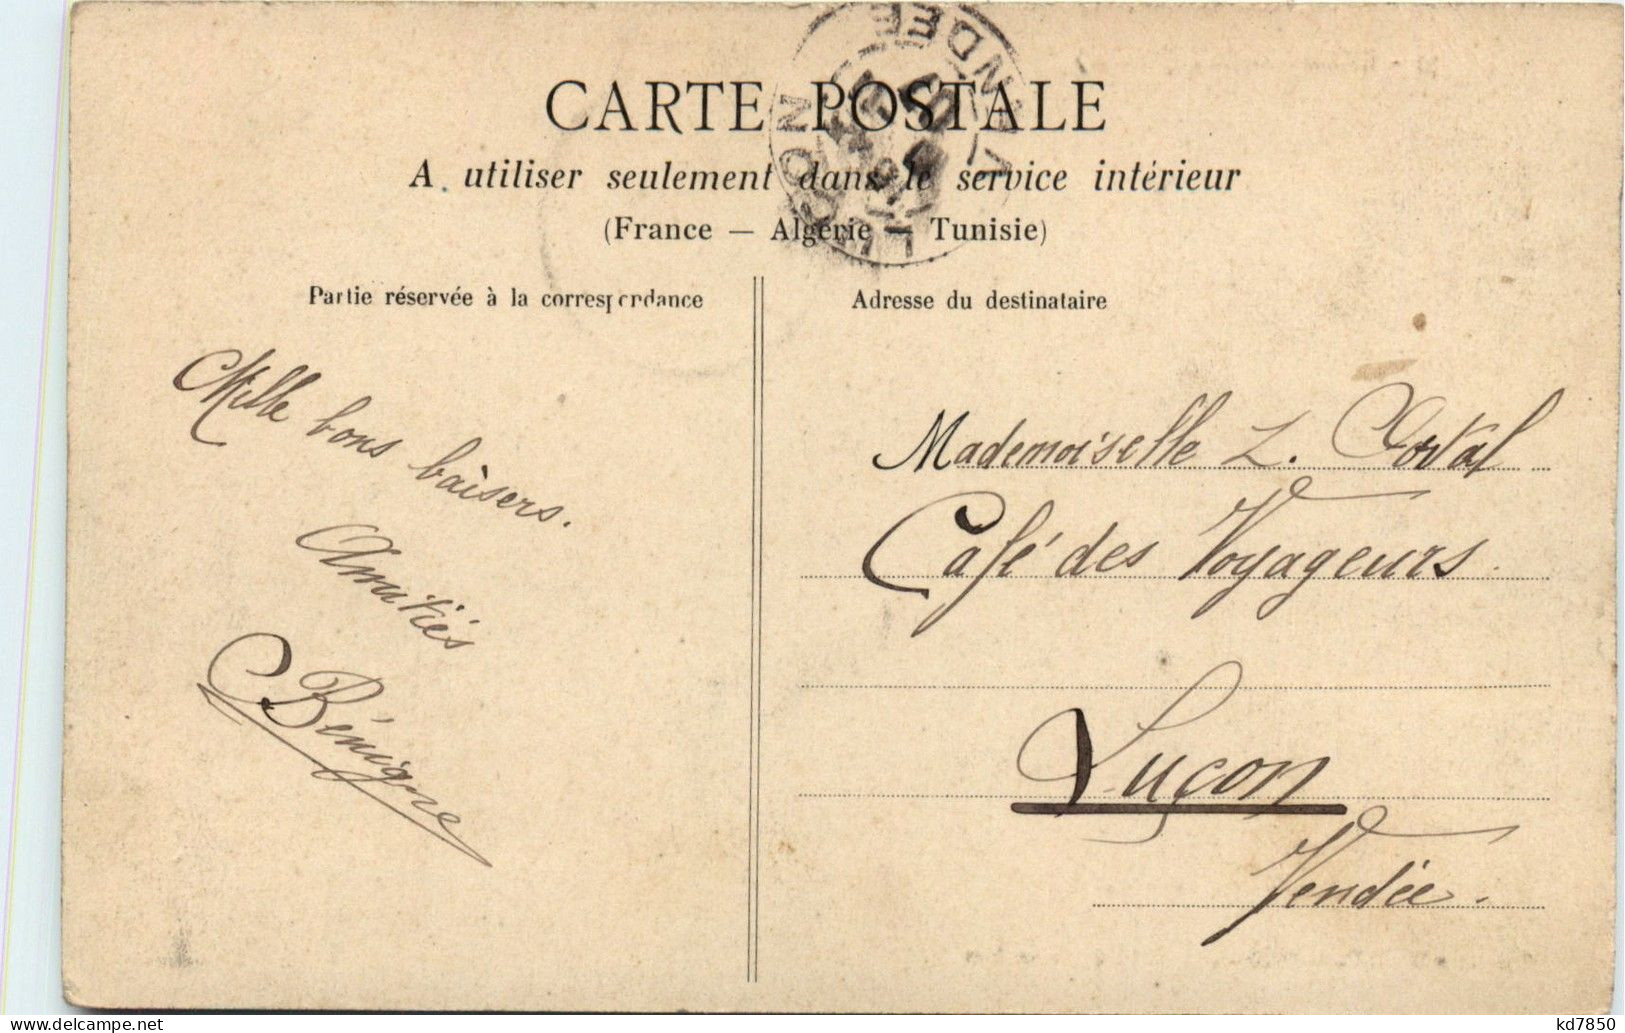 CARTE POSTALE
A utiliser seulement dans le service intérieur
(France — Algérie — Tunisie)
Partie réservée à la correspondance
Adresse du destinataire
Mille bons baisers.
Amitiés
Bénigne
Mademoiselle L.
Café des Voyageurs.
Luçon
Vendée.
LUÇON
VENDÉE
kd7850